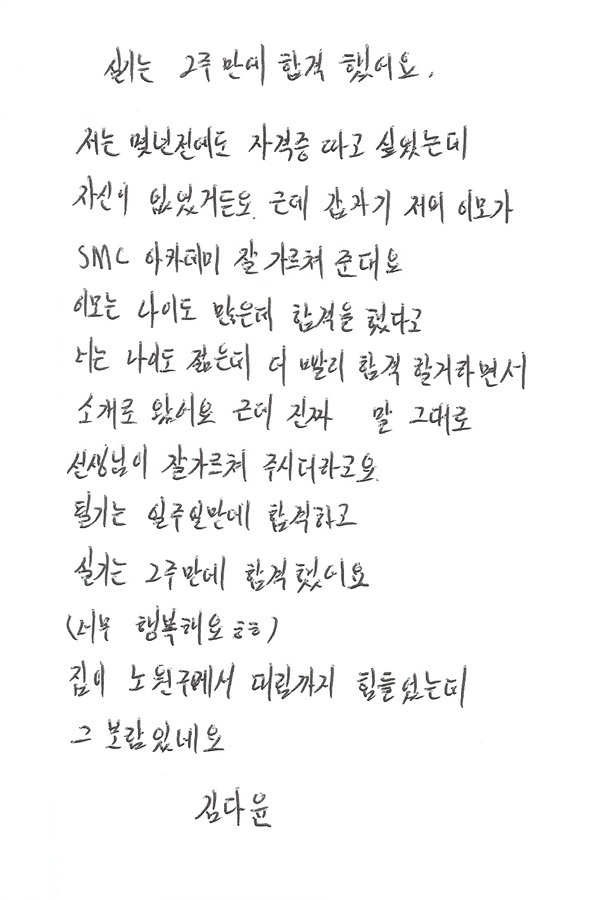 실기는 2주만에 합격 했어요.
저는 몇년전에도 자격증 따고 싶었는데
자신이 없었거든요. 근데 갑자기 저희 이모가
SMC 아카데미 잘 가르쳐 준대요
이모는 나이도 많은데 합격을 했다고
너는 나이도 젊은데 더 빨리 합격 할거하면서
소개로 왔어요 근데 진짜 말 그대로
선생님이 잘가르쳐 주시더라고요.
필기는 일주일만에 합격하고
실기는 2주만에 합격했어요
(너무 행복해요 ㅎㅎ)
집이 노원구에서 대림까지 힘들었는데
그 보람있네요
김다윤